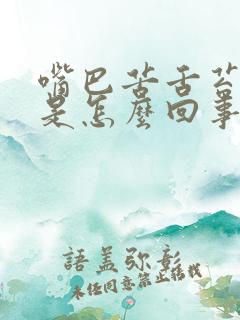 嘴巴苦舌苔
是怎麼回事
語蓋弥彰
未经同意禁止搭我